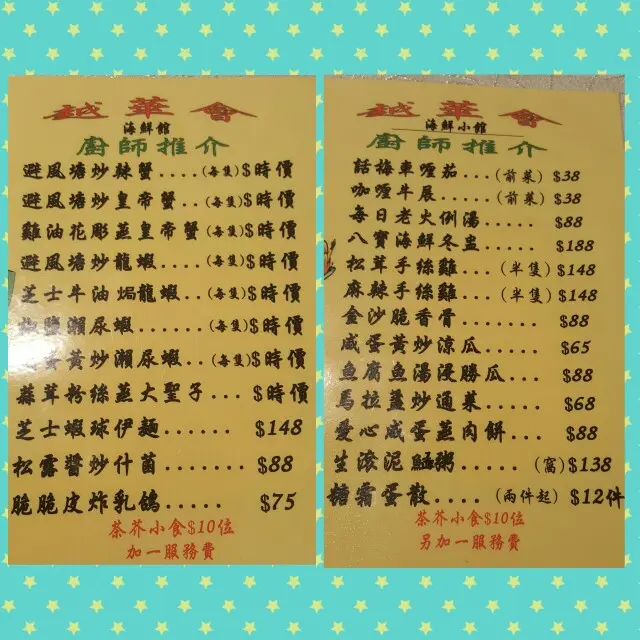 越華會
海鮮館
廚師推介
避風塘炒辣蟹....(每隻)$時價
避風塘炒皇帝蟹..(每隻)$時價
雞油花彫蒸皇帝蟹(每隻)$時價
避風塘炒龍蝦....(每隻)$時價
芝士牛油焗龍蝦..(每隻)$時價
鹽瀨尿蝦......(每隻)$時價
黃炒瀨尿蝦..(每隻)$時價
蒜茸粉絲蒸大聖子... $時價
芝士蝦球伊麵...... $148
松露醬炒什菌....... $88
脆脆皮炸乳鴿..... $75
茶芥小食$10位
加一服務費
越華會
海鮮小館
廚師推介
話梅車喱茄...(前菜) $38
咖喱牛展.....(前菜) $38
每日老火例湯..... $88
八寶海鮮冬盅..... $188
松茸手絲雞...(半隻) $148
麻辣手絲雞...(半隻) $148
金沙脆香骨....... $88
咸蛋黃炒涼瓜..... $65
魚腐魚湯浸勝瓜... $88
馬拉盞炒通菜..... $68
愛心咸蛋蒸肉餅... $88
生滾泥鯭粥.....(窩)$138
糖霜蛋散....(兩件起) $12件
茶芥小食$10位
另加一服務費